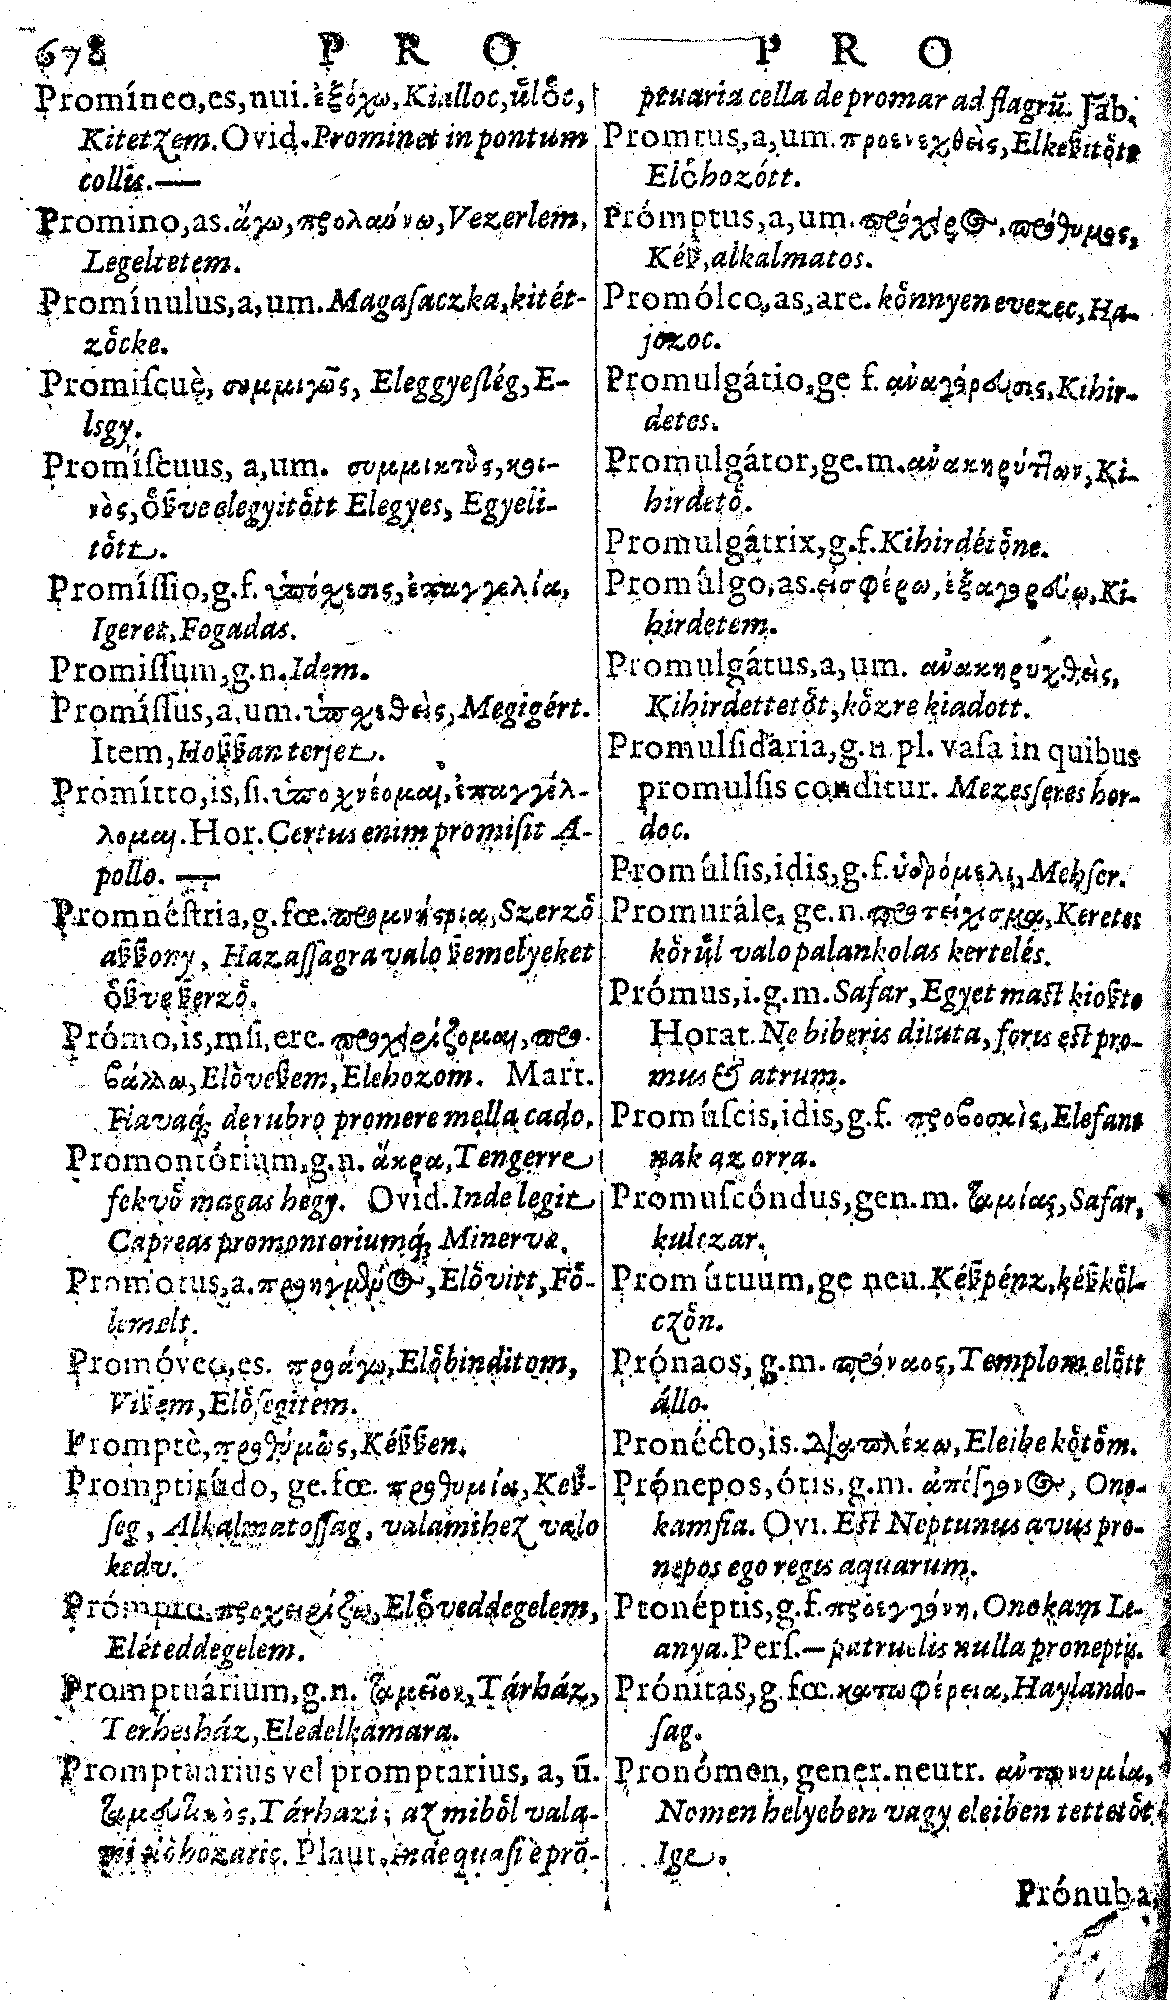 678 P R O P R O
Promíneo,es,nui. ἐξόχω, Kialloc,ůlőc,
Kitetzem. Ovid. Prominet in pontum
collis.—
Promino,as. ἄγω, προλαύνω, Vezerlem,
Legeltetem.
Promínulus,a,um. Magaſaczka, kitét-
zőcke.
Promiſcuè, συμμιγῶς, Eleggyeſlég, E-
lsgy.
Promíſcuus, a,um. συμμικτὸς, κοι-
νὸς, őßve elegyitőtt Elegyes, Egyeli-
tőtt.
Promíſſio,g.f. ὑπόχεσις, ἐπαγγελία,
Igeret, Fogadas.
Promiſſum,g.n. Idem.
Promíſſus,a,um. ὑποχεθεὶς, Megigért.
Item, Hoßßan terjet.
Promítto,is,ſi. ὑποχνέομαι, ἐπαγγέλ-
λομαι. Hor. Certus enim promiſit A-
pollo. —
Promnéſtria,g.fœ. προμνήςρια, Szerző
aßßony, Hazaſſagra valo ßemelyeket
őßve ßerző.
Prómo,is,mſi,ere. προχειρίζομαι, προ-
βάλλω, Előveßem, Elehozom. Mart.
Flavaq́; de rubro promere mella cado.
Promontórium,g.n. ἄκρα, Tengerre
fekvő magas hegy. Ovid. Inde legit
Capreas promontoriumq́; Minervæ.
Promotus,a. προηγμένος, Elővitt, Fő-
lemelt.
Promóveo,es. προάγω, Elöbinditom,
Vißem, Elősegitem.
Promptè, προθύμως, Kéßßen.
Promptitúdo, ge.fœ. προθυμία, Keß-
ſeg, Alkalmatoſſag, valamihez valo
kedv.
Prómpto. προχειρίζω, Előveddegelem,
Eléteddegelem.
Promptuárium,g.n. ταμεῖον, Tárház,
Terhesház, Eledelkámara.
Promptuarius vel promptarius, a, ũ.
ταμιευτικὸς, Tárhazi; az miből vala-
mi elöhozatic. Plaut. inde quaſi è prõ-
ptuaria cella depromar ad flagrũ. Jãb.
Promtus,a,um. προενεχθεὶς, Elkeßitőtt
Elöhozótt.
Prómptus,a,um. πρόχειρος, πρόθυμος,
Kéß, alkalmatos.
Promólco,as,are. kőnnyen evezec, Ha-
jozoc.
Promulgátio,ge f. ἀναγόρευσις, Kihir-
detes.
Promulgátor,ge.m. ἀνακηρύττων, Ki-
hirdető.
Promulgátrix,g.f. Kihirdétőne.
Promúlgo,as. εἰσφέρω, ἐξαγορεύω, Ki-
hirdetem.
Promulgátus,a,um. ἀνακηρυχθεὶς,
Kihirdettetőt, kőzre kiadott.
Promulſidária,g.n pl. vaſa in quibus
promulſis conditur. Mezesſeres hor-
doc.
Promúlſis,idis,g.f. ὑδρόμελι, Mehſer.
Promurále, ge.n. προτείχισμα, Keretes
kőrűl valo palankolas kertelés.
Prómus,i.g.m. Safar, Egyet maſt kioßto
Horat. Ne biberis diluta, foris eſt pro-
mus & atrum.
Promúſcis,idis,g.f. προβοσκὶς, Elefant
nak az orra.
Promuſcóndus,gen.m. ταμίας, Safar,
kulczar.
Promútuum,ge neu. Kéßpénz, kéßkől-
czőn.
Prónaos, g.m. πρόναος, Templom előtt
állo.
Pronécto,is. διαπλέκω, Eleibe kőtőm.
Prónepos,ótis,g.m. ἀπέγγονος, Ono-
kamfia. Ovi. Eſt Neptunus avus pro-
nepos ego regis aquarum.
Pronéptis,g.f. προεγγόνη, Onokam Le-
anya. Perſ.— patruelis nulla proneptis.
Prónitas,g fœ. κατωφέρεια, Haylando-
ſag.
Pronómen, gener.neutr. ἀντωνυμία,
Nomen helyeben vagy eleiben tettetőt
Ige.
Prónuba,